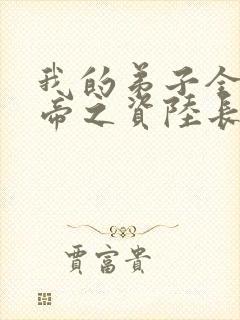 我的弟子全
帝之資陸長
賈富貴